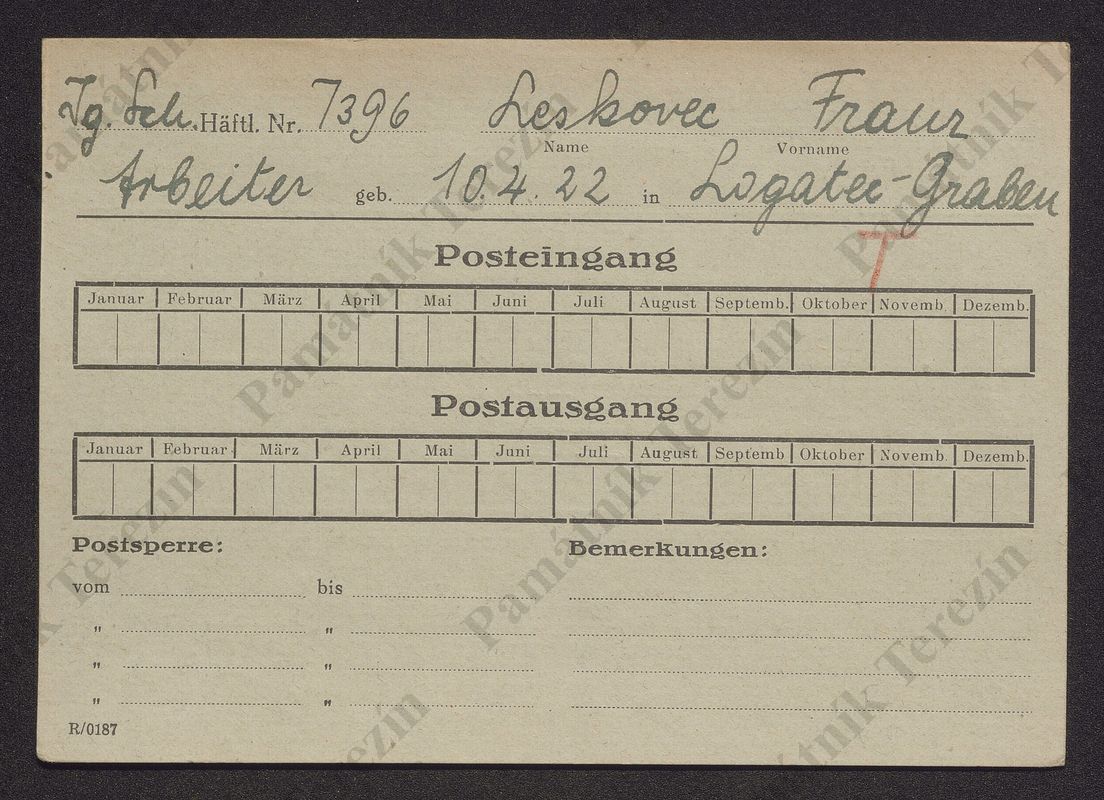 Jg. Sch. Häftl. Nr. 7396 Leskovec Franz
Name Vorname
Arbeiter geb. 10.4.22 in Logatec-Graben
T
Posteingang
Januar Februar März April Mai Juni Juli August Septemb. Oktober Novemb. Dezemb.
Postausgang
Januar Februar März April Mai Juni Juli August Septemb Oktober Novemb. Dezemb.
Postsperre: Bemerkungen:
vom bis
" "
" "
" "
R/0187
Památník Terezín